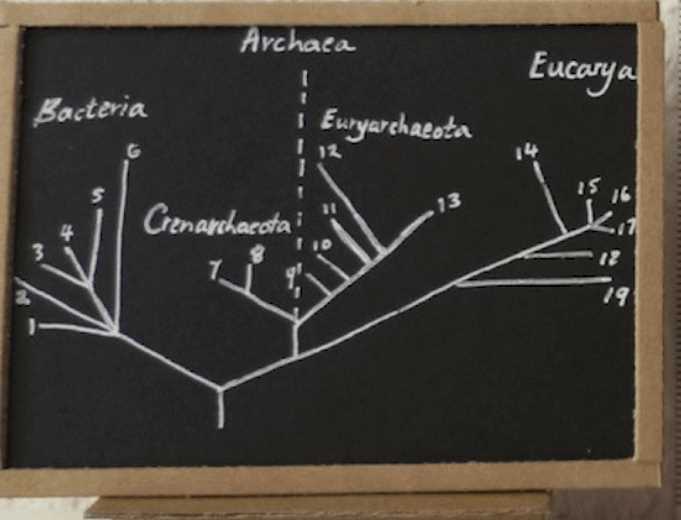 Archaea
Eucarya
Bacteria
Euryarchaeota
Crenarchaeota
1
2
3
4
5
6
7
8
9
10
11
12
13
14
15
16
17
18
19